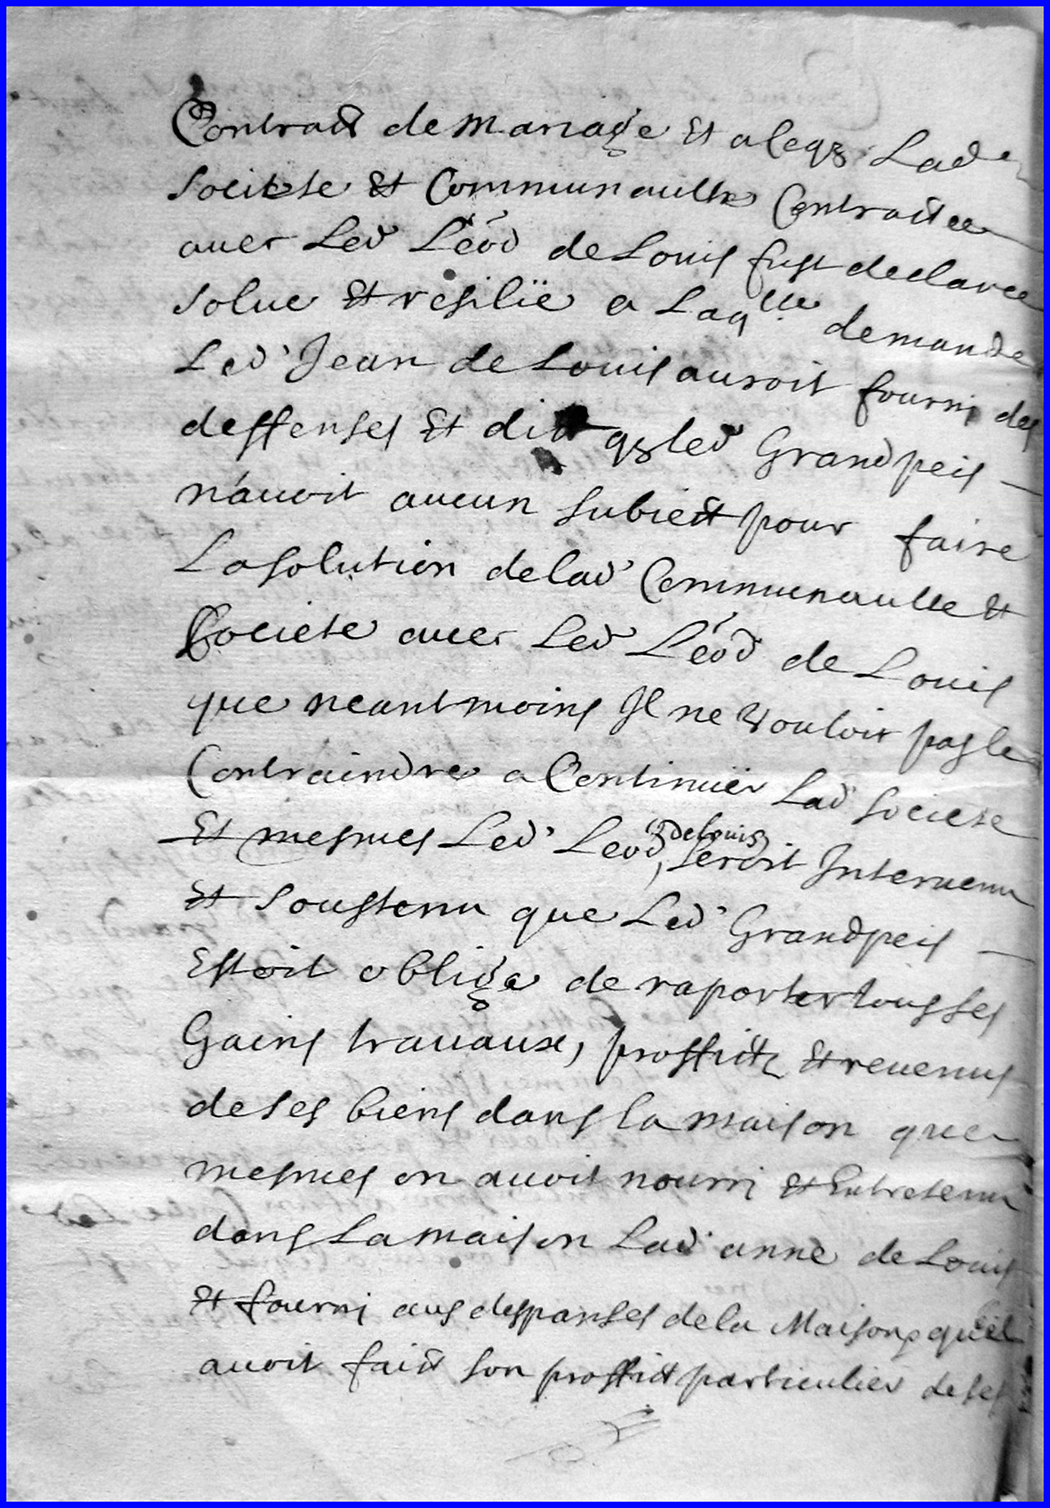 Contract de mariage Et a ce q3 Lade
Societe Et Communaulte Contractee
avec Led Léod de Louis fust declaree
solue Et resilië a Laqlle demande
Led' Jean de Louis auroit fourni des
deffenses Et dit q3 led Grandpeis
n'auoit aucun subiect pour faire
La solution de lad' Communaulte Et
Societe auec Led Léod de Louis
que neantmoins Il ne Vouloit pas le
Contraindre a Continuër Lad' Societe
Et mesmes Led' Leod, de Louis Seroit Interuenu
Et Soustenu que Led' Grandpeis
Estoit oblige de raporter tous ses
Gains trauaux, proffictz Et reuenus
de ses biens dans la maison que
mesmes on auoit nourri Et Entretenu
dans La maison Lad' anne de Louis
Et fourni aus despanses de la Maison, qu'el
auoit faict son proffict particulier de ses